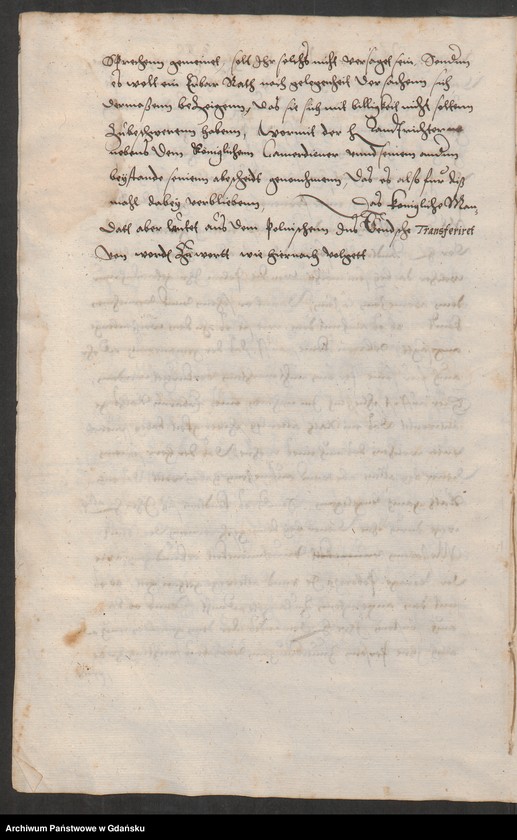 Sprechenn gemeinet, solt Ihr solchs nicht versaget sein. Sondern
es wolt ein Erbar Rath nach gelegenheit der sachenn sich
dermaßenn bezeigenn, das sie sich mit billigkeit nicht soltenn
Zubeschwerenn habenn, Wormit der H Landtrichter
nebens dem Königlichenn Camerdiener vnnd seinem andern
beystande seinenn abescheidt genohmmenn, Das es also fur diß
mahl dabey verbliebenn, Das Königliche Man-
datt aber lautet aus dem Polnischenn Ins Deudsche Transferiret
Von wordt Zu wortt wie hiernach volgett
Archiwum Państwowe w Gdańsku